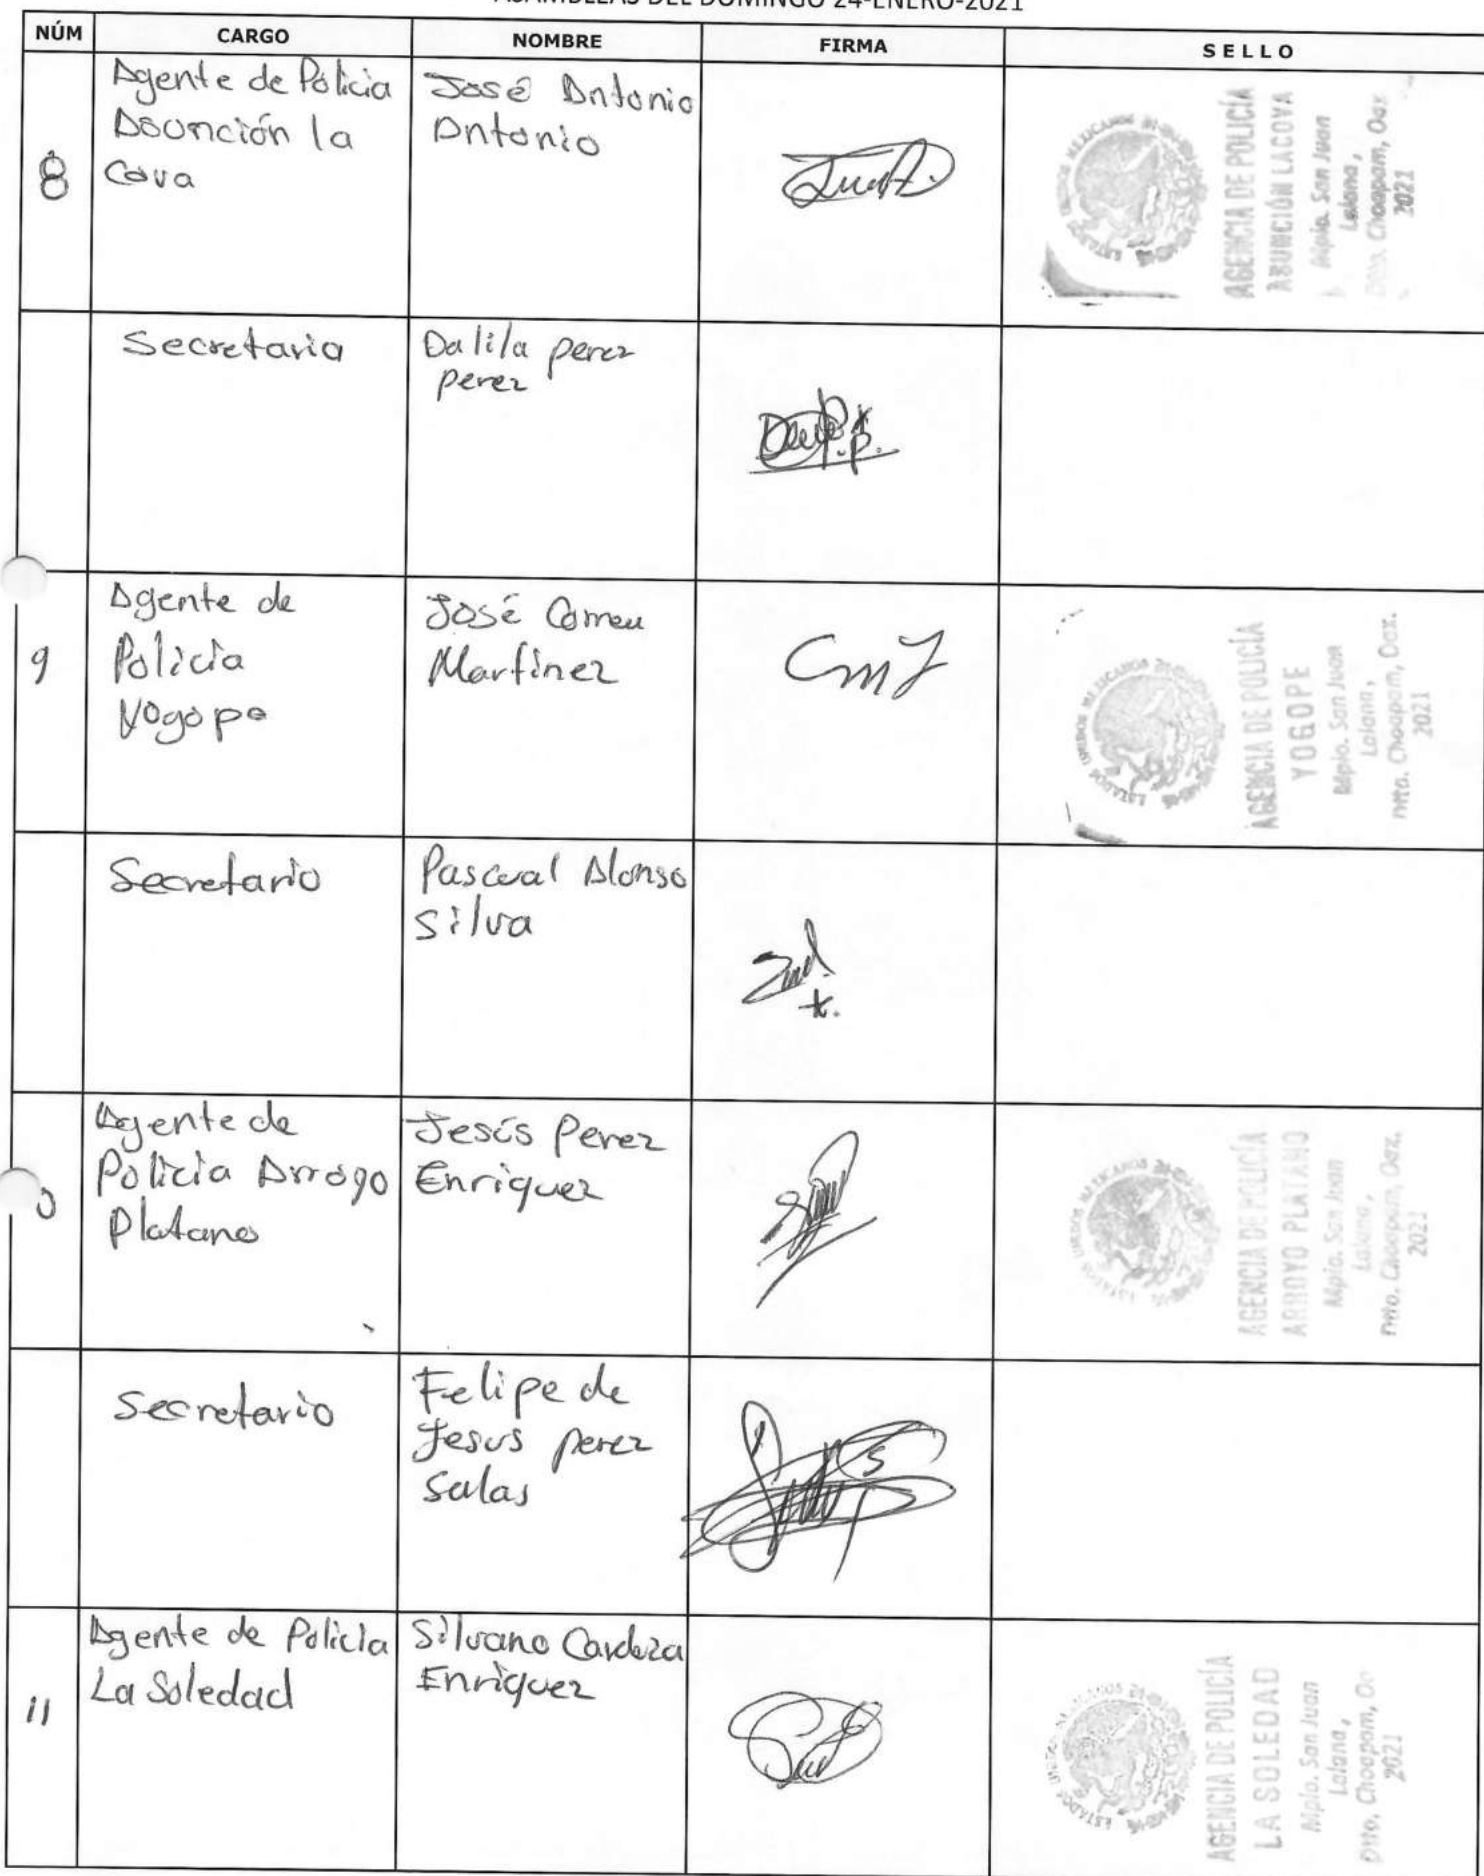 ASAMBLEAS DEL DOMINGO 24-ENERO-2021
NÚM CARGO NOMBRE FIRMA SELLO
8
Agente de Policia
Asunción la
Cova
José Antonio
Antonio
ESTADOS UNIDOS MEXICANOS
AGENCIA DE POLICÍA
ASUNCIÓN LACOVA
Mpio. San Juan
Lalana,
Dtto. Choapam, Oax
2021
Secretaria
Dalila perez
perez
9
Agente de
Policia
Yogope
José Correu
Martinez
CmJ
ESTADOS UNIDOS MEXICANOS
AGENCIA DE POLICÍA
YOGOPE
Mpio. San Juan
Lalana,
Dtto. Choapam, Oax.
2021
Secretario
Pascual Alonso
Silva
0
Agente de
Policia Arroyo
Platano
Jesús Perez
Enriquez
ESTADOS UNIDOS MEXICANOS
AGENCIA DE POLICÍA
ARROYO PLATANO
Mpio. San Juan
Lalana,
Dtto. Choapam, Oax.
2021
Secretario
Felipe de
Jesus perez
Salas
11
Agente de Policia
La Soledad
Silvano Cardoza
Enriquez
ESTADOS UNIDOS MEXICANOS
AGENCIA DE POLICÍA
LA SOLEDAD
Mpio. San Juan
Lalana,
Dtto. Choapam, Oa
2021